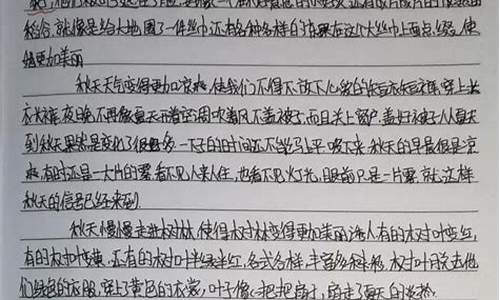 稻谷,就像是给大地围了一件丝巾还有各种各样的蔬果在这个大丝巾上面点缀,使
她更加美丽
秋天天气变得更加凉爽,使我们不得不放下心爱的短衣短裤,穿上长
衣长裤,夜晚不再像夏天开着空调吹着风不盖被子,而且关上窗户,盖好被子,从夏天
到秋天果然是变化了很多,一下子的时间还不能马上平 下来,秋天的早晨很是凉
爽,有时还是一大片的雾,看不见人来人往,也看不见灯光,眼前只是一片雾,就这样
秋天的信号已经来到
秋天慢慢走进树林,使得树林变得更加美丽诱人,有的树叶变红,
有的树叶变黄,还有的树叶半绿半红,各式各样,丰富多种多彩,树叶脱去他
们绿色的衣服,穿上了黄色的衣裳,叶子像一把把扇子,扇走了夏天的炎热